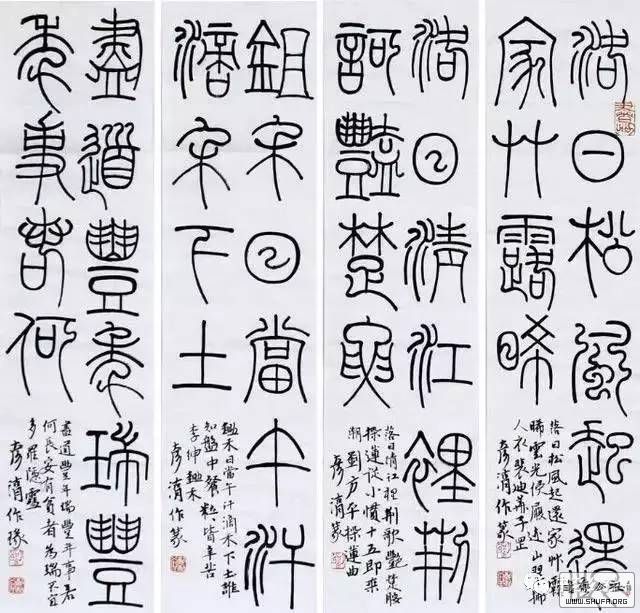 落日松風起還
家艸露晞
落日松風起還家艸露
晞雲光侵履迹山翠拂
人衣裴迪華子罡
落日清江裡荊
歌艷楚腰
落日清江裡荊歌艷楚腰
採蓮從小慣十五即乘
潮劉方平採蓮曲
鉏禾日當午汗
滴禾下土
鋤禾日當午汗滴禾下土誰
知盤中餐粒粒皆辛苦
李紳鋤禾
作篆
盡道豐年瑞豐
年事若何
盡道豐年瑞豐年事若
何長安有貧者為瑞不宜
多羅隱雪
作篆
WWW.SAUFA.COM